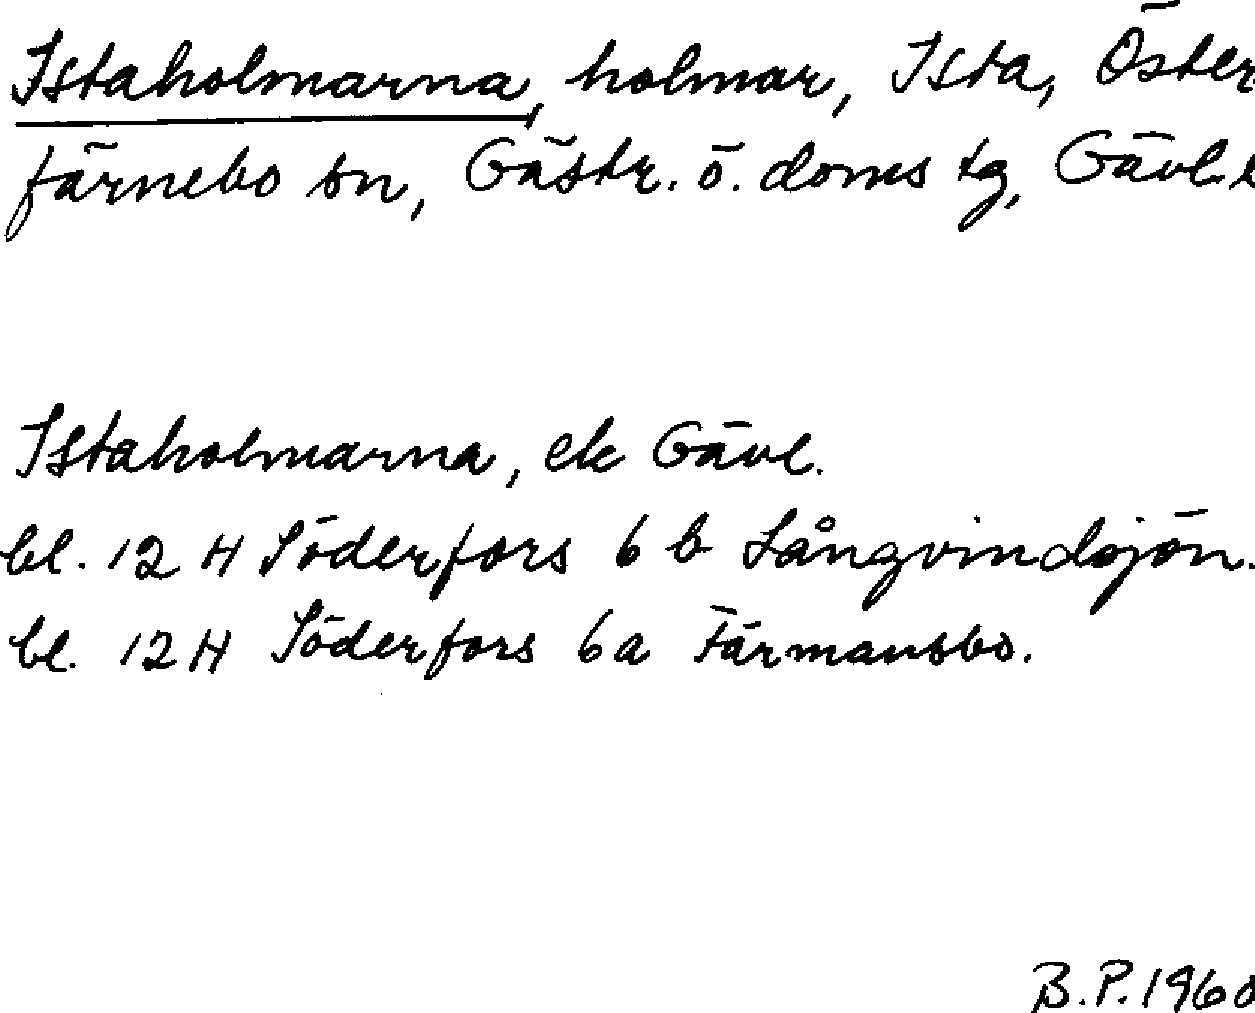 Istaholmarna, holmar, Ista, Öster
färnebo sn, Gästr. ö. doms tg, Gävl. l
Istaholmarna, ek Gävl.
bl. 12 H Söderfors 6 b Långvindsjön.
bl. 12 H Söderfors 6 a Färmansbo.
B.P. 1968